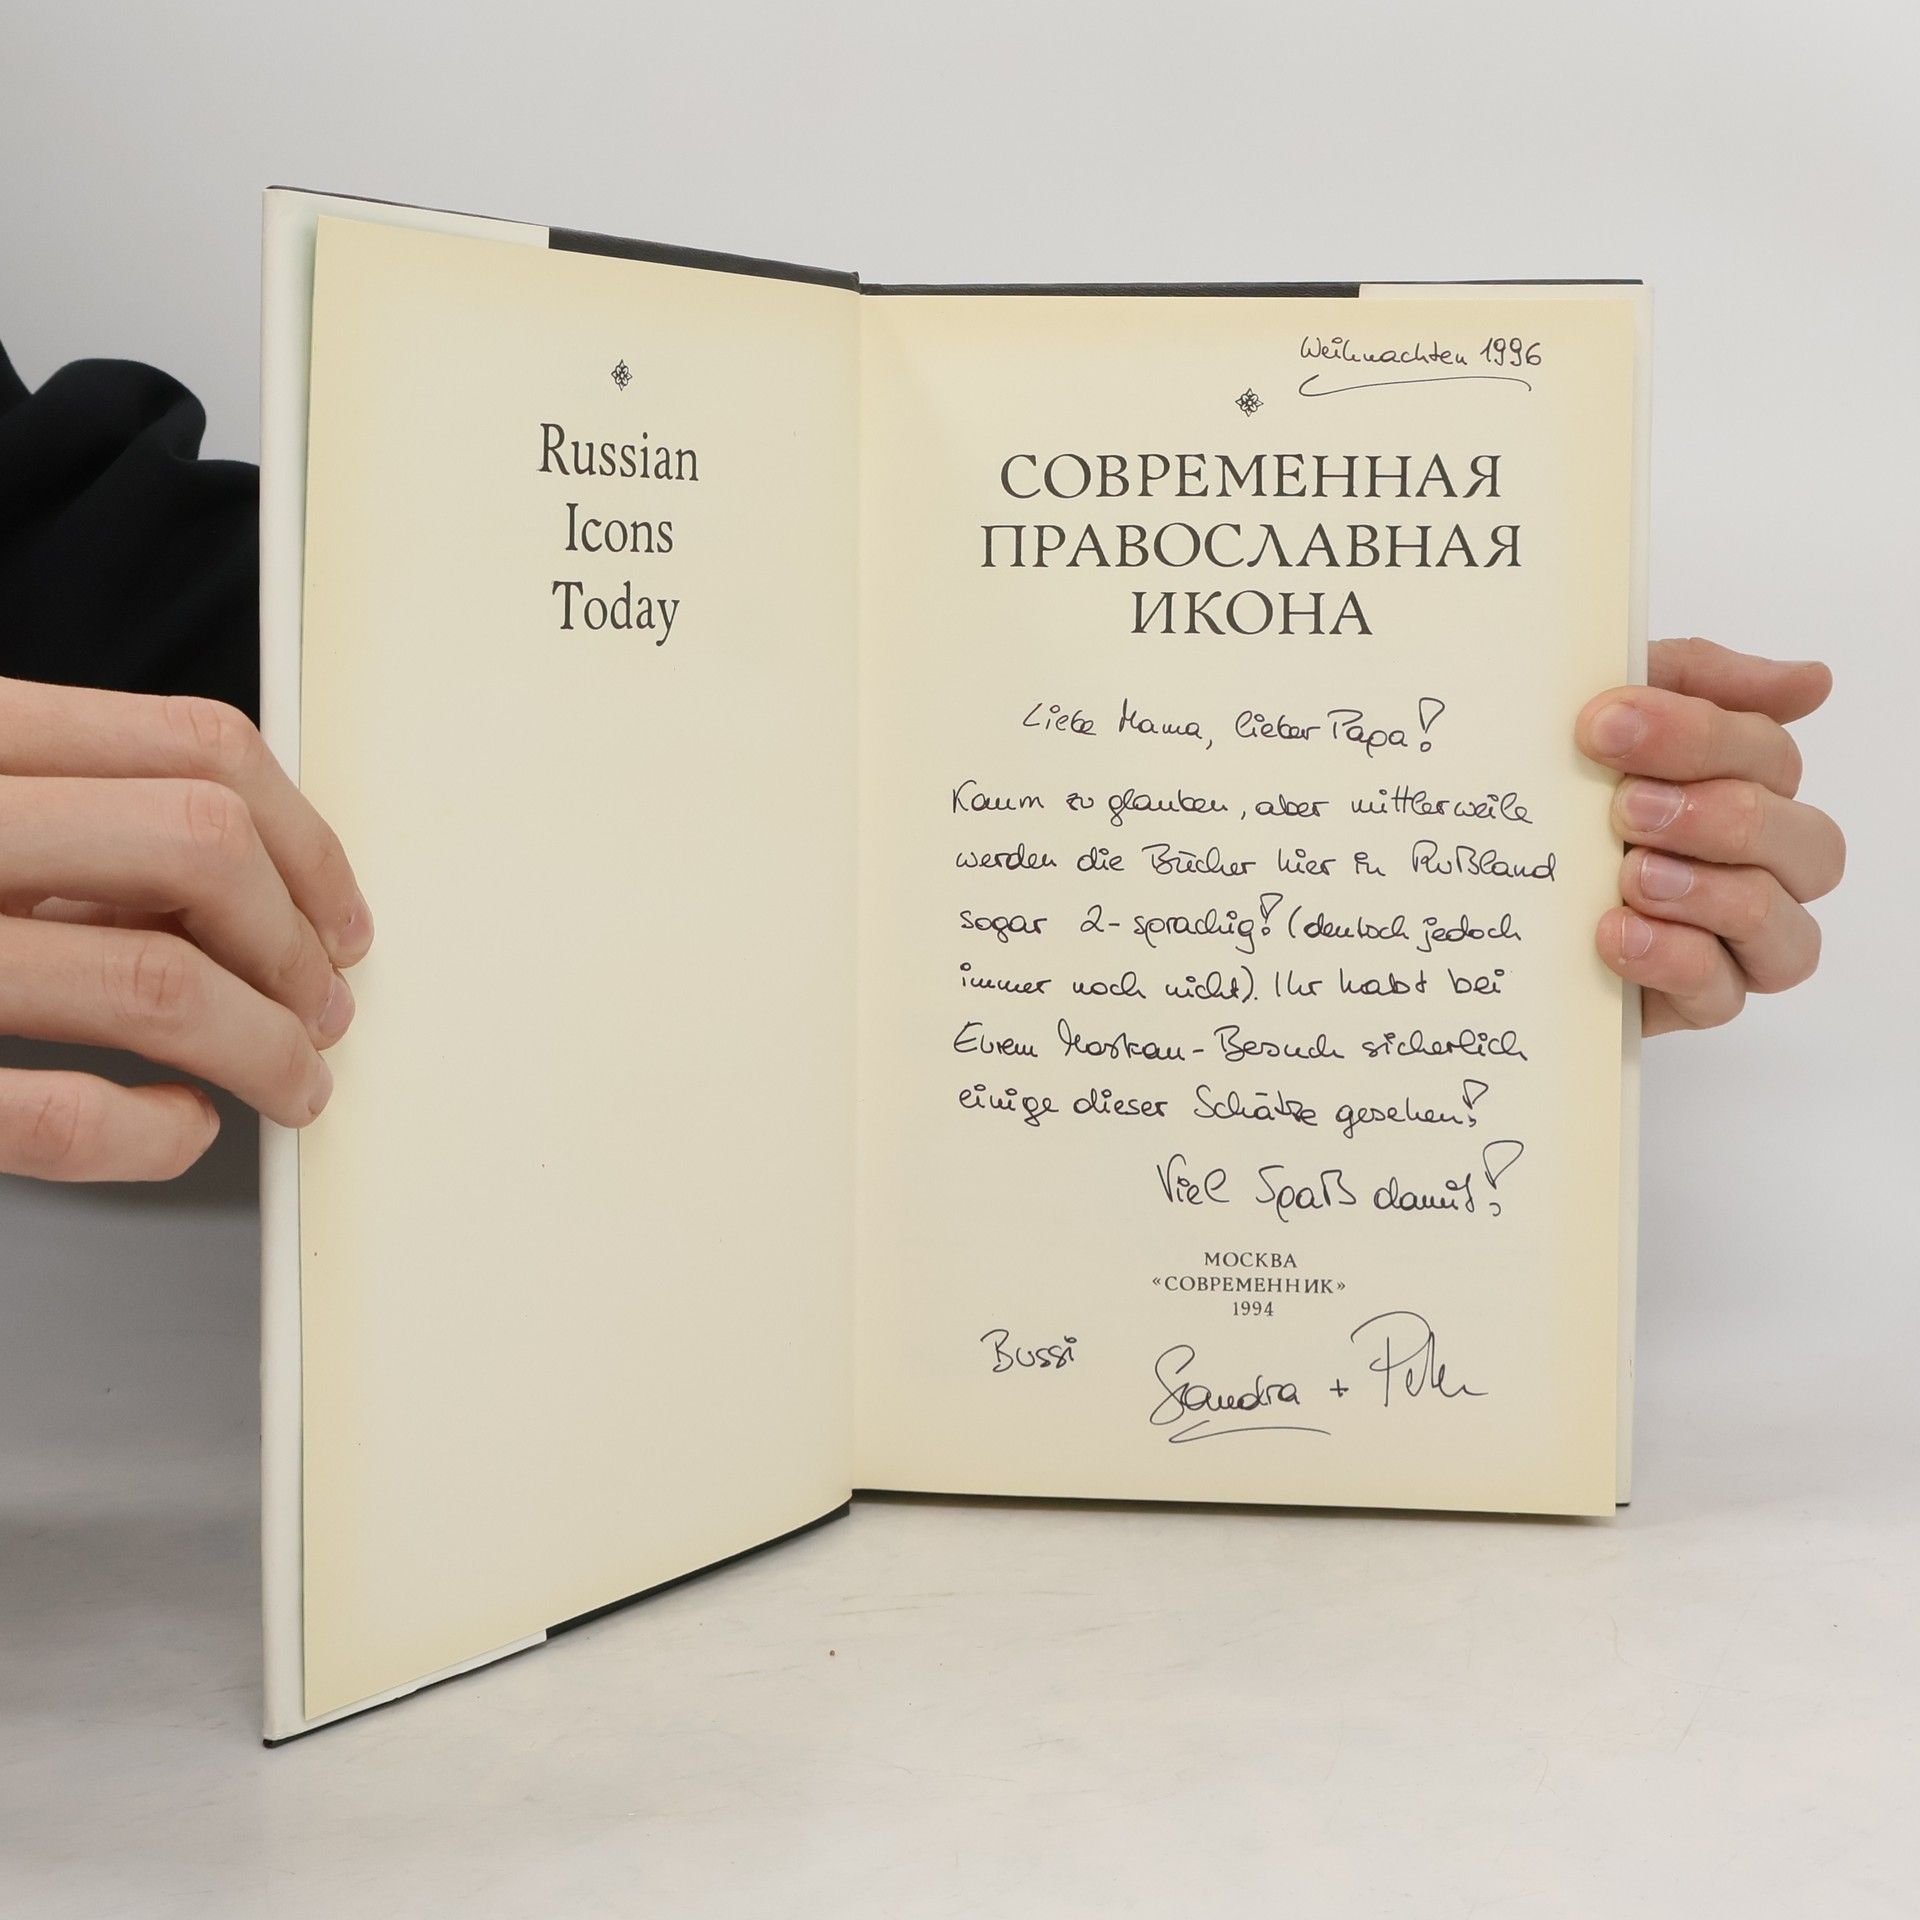 Russian
Icons
Today
Weihnachten 1996
СОВРЕМЕННАЯ
ПРАВОСЛАВНАЯ
ИКОНА
Liebe Mama, lieber Papa!
Kaum zu glauben, aber mittlerweile
werden die Bücher hier in Rußland
sogar 2-sprachig! (deutsch jedoch
immer noch nicht). Ihr habt bei
Eurem Moskau-Besuch sicherlich
einige dieser Schätze gesehen!
Viel Spaß damit!
МОСКВА
«СОВРЕМЕННИК»
1994
Bussi
Sandra + Peter